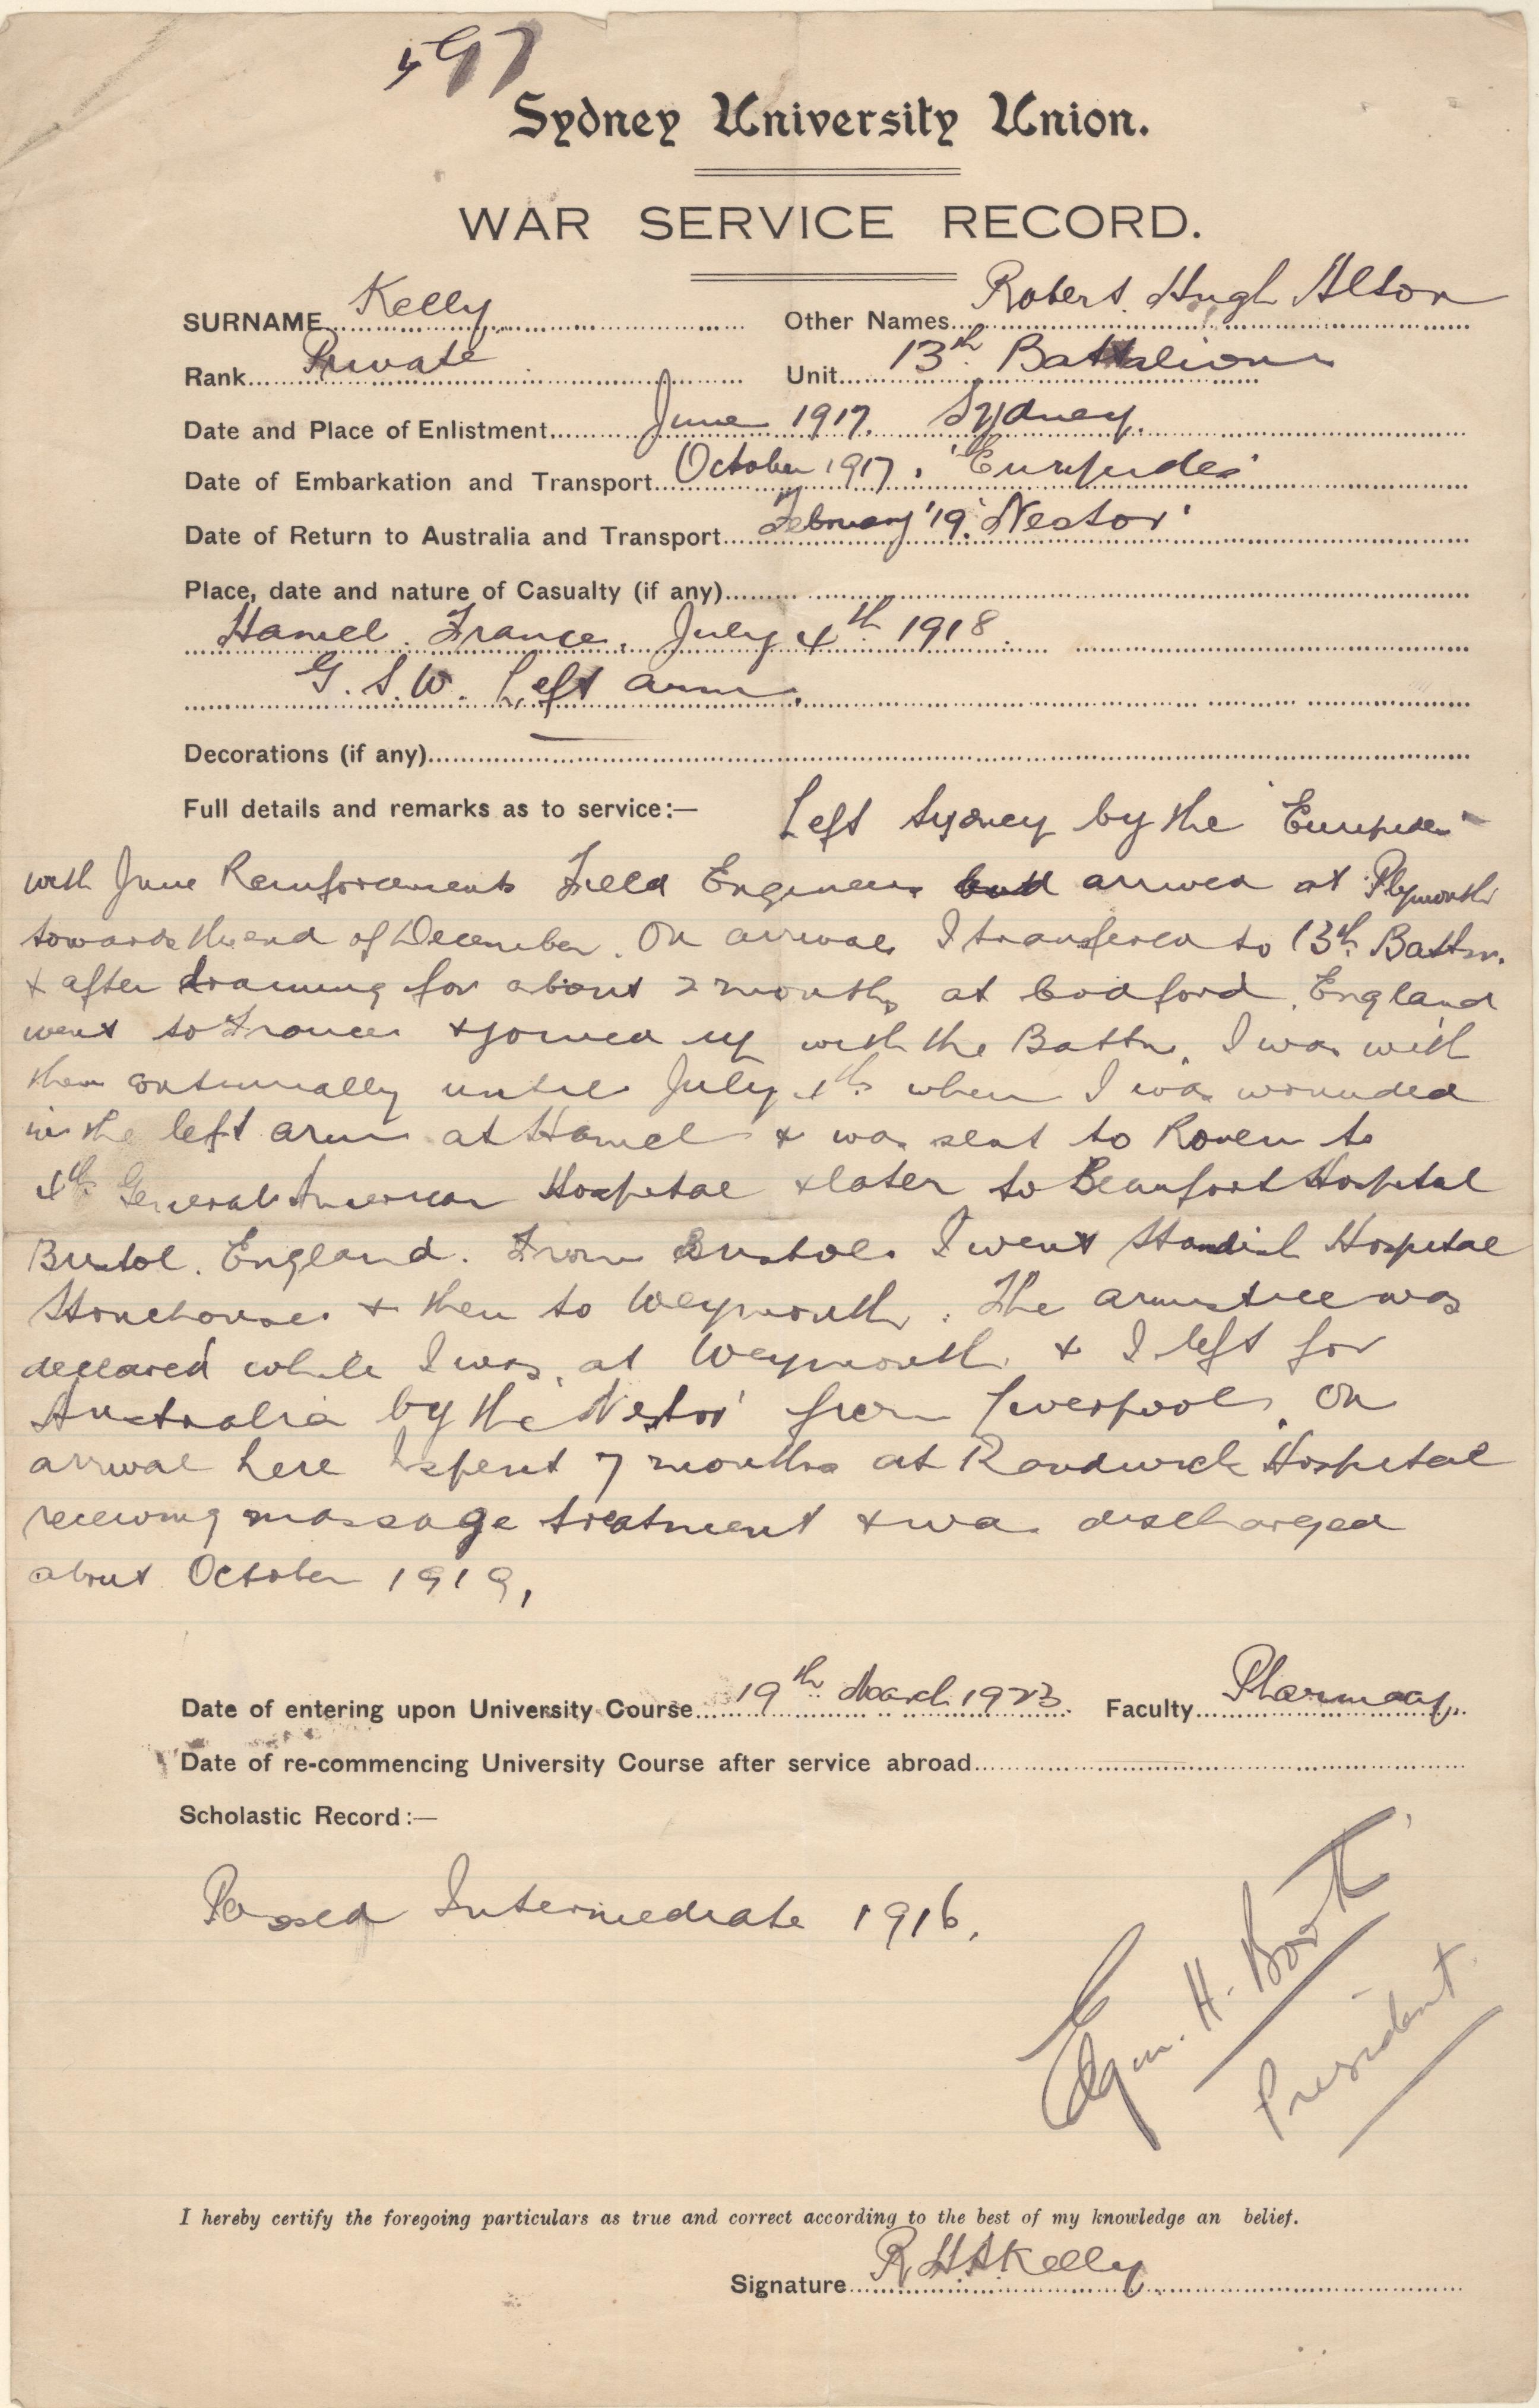 597
Sydney University Union.
WAR SERVICE RECORD.
SURNAME Kelly Other Names Robert Hugh Alton
Rank Private Unit 13th Battalion
Date and Place of Enlistment June 1917. Sydney.
Date of Embarkation and Transport October 1917. 'Euripides'
Date of Return to Australia and Transport February '19. 'Nestor'
Place, date and nature of Casualty (if any)
Hamel. France. July 4th 1918.
G.S.W. Left arm.
Decorations (if any) —
Full details and remarks as to service:— Left Sydney by the 'Euripides'
with June Reinforcements Field Engineers and arrived at Plymouth
towards the end of December. On arrival I transfered to 13th Battn.
& after training for about 2 months at Codford, England
went to France & joined up with the Battn. I was with
them continually until July 4th when I was wounded
in the left arm at Hamel & was sent to Rouen to
4th General American Hospital & later to Beaufort Hospital
Bristol. England. From Bristol I went Standish Hospital
Stonehouse & then to Weymouth. The armistice was
declared while I was at Weymouth & I left for
Australia by the 'Nestor' from Liverpool. On
arrival here I spent 7 months at Randwick Hospital
receiving massage treatment & was discharged
about October 1919.
Date of entering upon University Course 19th March 1923. Faculty Pharmacy.
Date of re-commencing University Course after service abroad
Scholastic Record:—
Passed Intermediate 1916.
Edgar H. Booth
President
I hereby certify the foregoing particulars as true and correct according to the best of my knowledge an belief.
Signature R H A Kelly